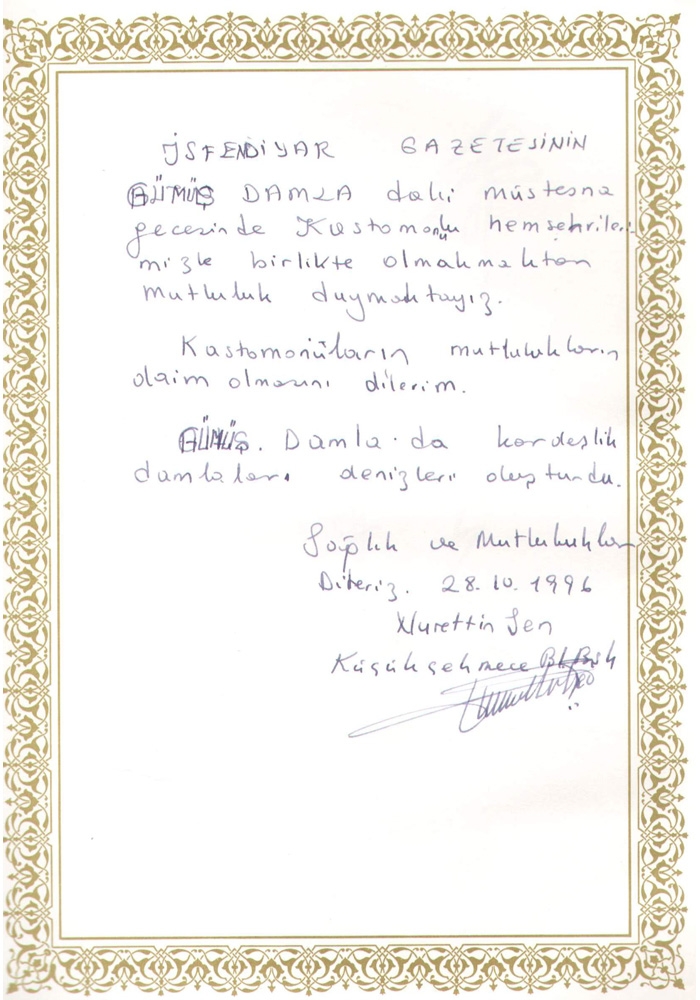 İSFENDİYAR GAZETESİNİN
GÜMÜŞ DAMLA daki müstesna
gecesinde Kastomonulu hemşehrileri
mizle birlikte olmakmaktan
mutluluk duymaktayız.
Kastomonuların mutlulukların
daim olmasını dilerim.
GÜMÜŞ. Damla.da kardeşlik
damlaları denizleri oluşturdu.
Sağlık ve Mutluluklar
Dileriz. 28.10.1996
Nurettin Şen
Küçükçekmece Bl. Bşk